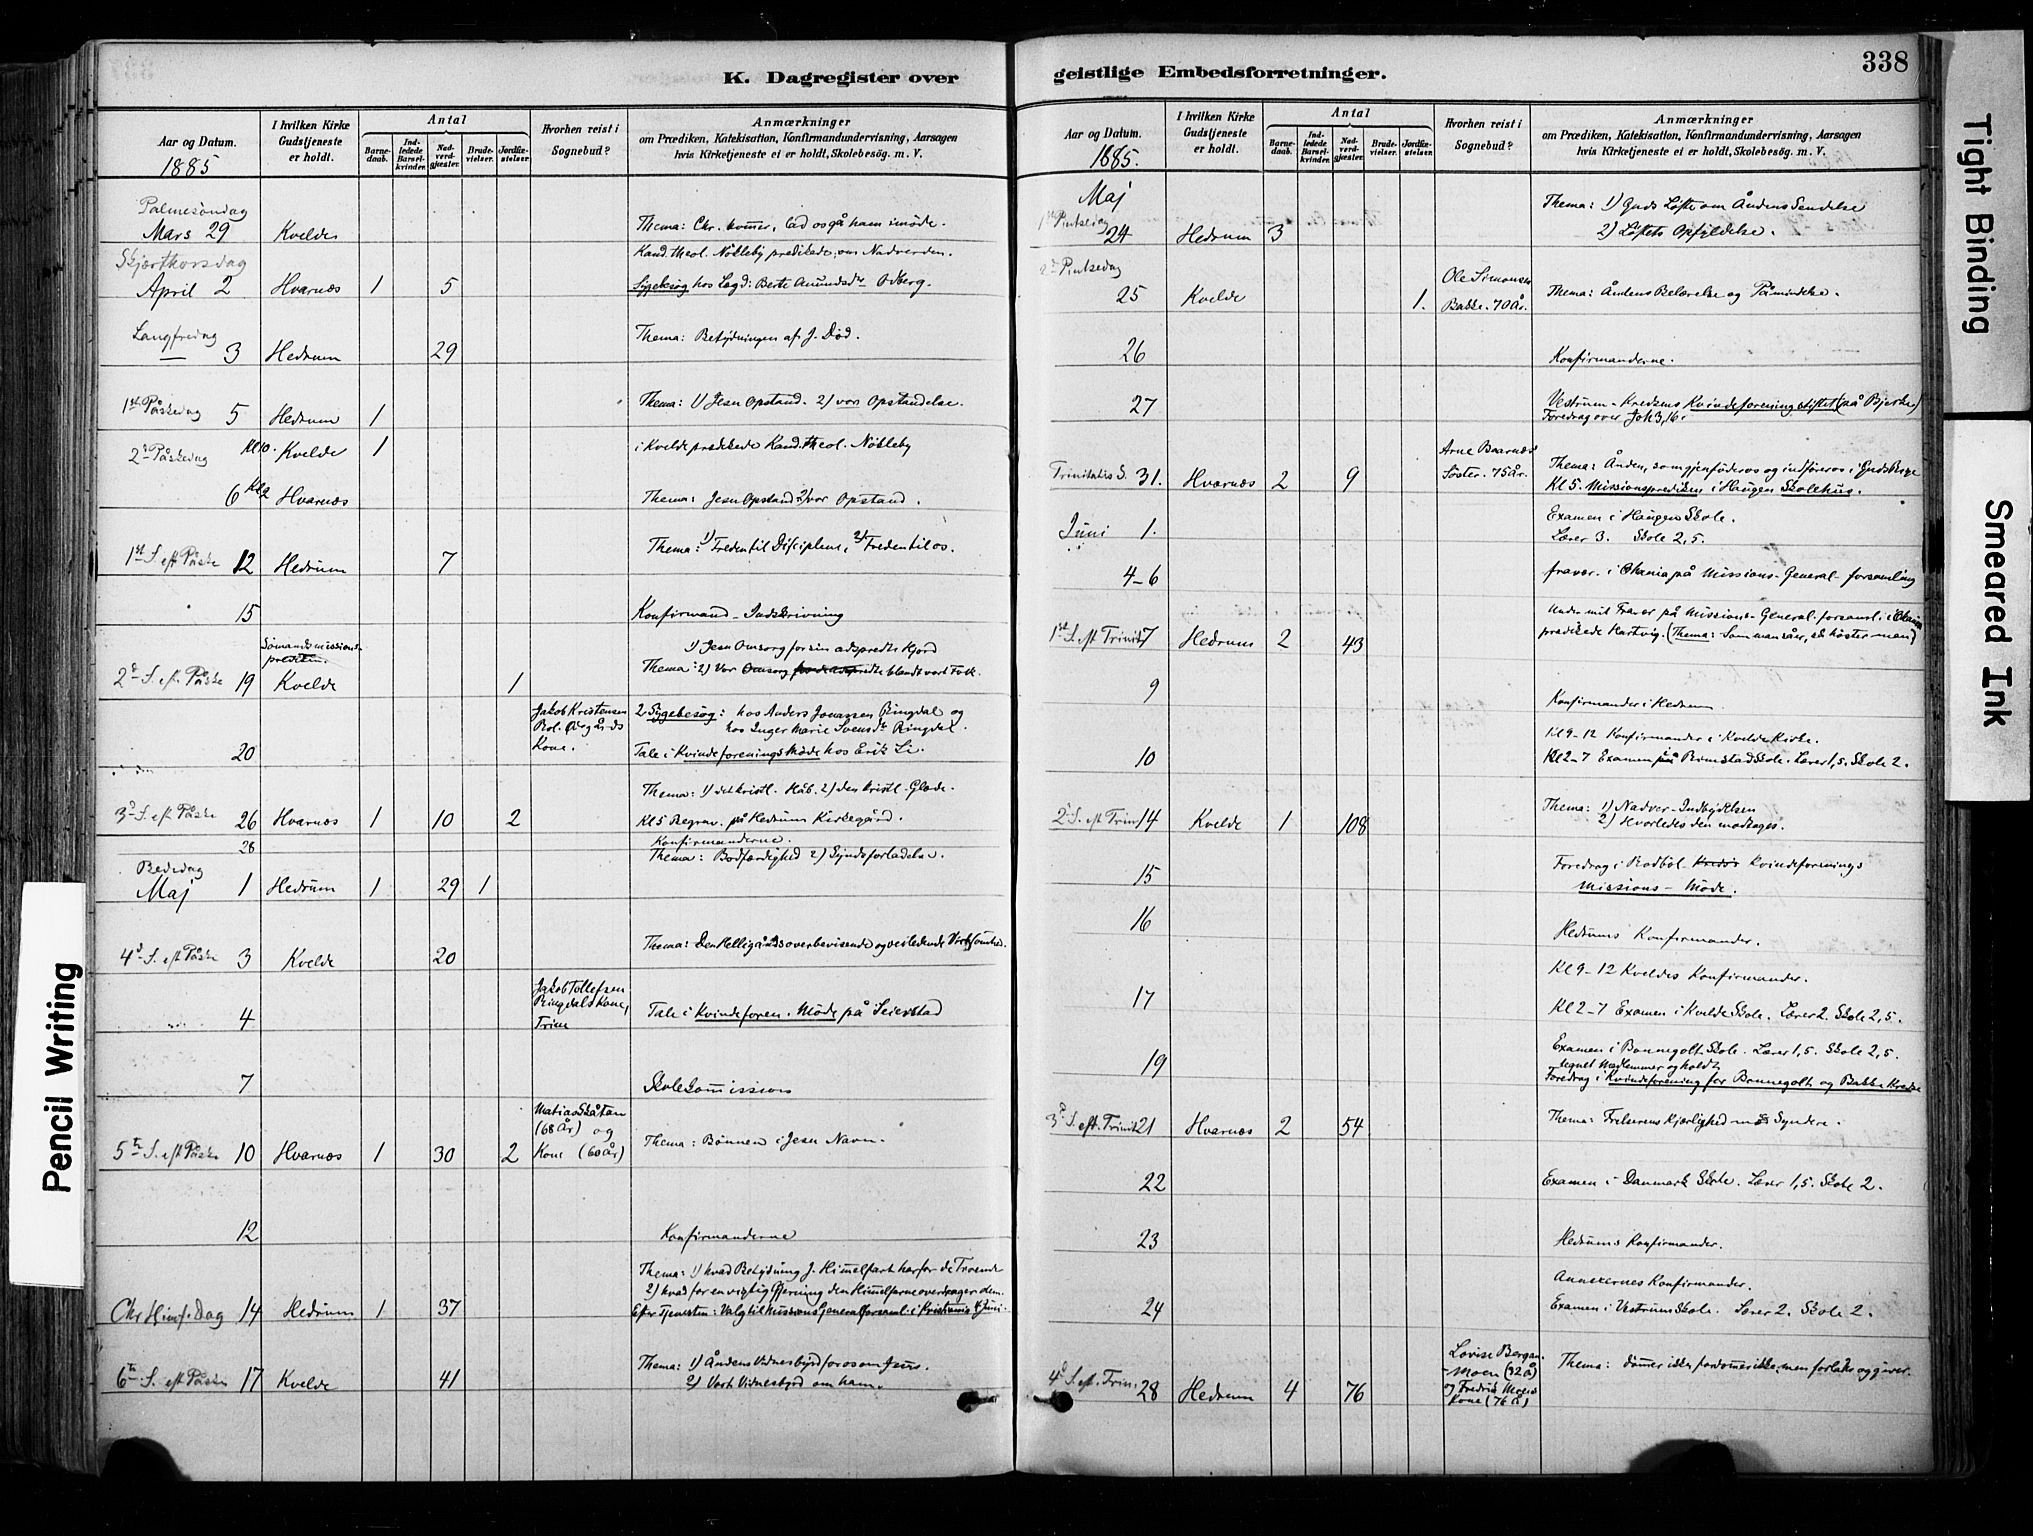 338
K. Dagregister over geistlige Embedsforretninger.
Aar og Datum.
1885
I hvilken Kirke Gudstjeneste er holdt.
Antal
Barnedaab.
Indledede Barselkvinder.
Nadverdgjester.
Brudevielser.
Jordfæstelser.
Hvorhen reist i Sognebud?
Anmærkninger
om Prædiken, Katekisation, Konfirmandundervisning, Aarsagen
hvis Kirketjeneste ei er holdt, Skolebesög. m. V.
Palmesöndag
Mars 29 Kvelde Thema: Chr. kommer, lad os gå ham imöde.
Kand. theol. Nökleby predikede om Nadverden.
Skjærthorsdag
April 2 Hvarnæs 1 5 Sygebesög hos Lægd: Berte Amundsdr
Langfredag
3 Hedrum 29 Thema: Betydningen af J. Död.
1ste Påskedag 5 Hedrum 1 Thema: 1) Jesu Opstand. 2) vor Opstandelse.
2d Påskedag Kl 10. Kvelde 1 i Kvelde predikede Kand. theol. Nökleby
6 Kl 2 Hvarnæs Thema: Jesu Opstand 2) vor Opstand.
1ste S. eft Påske 12 Hedrum 7 Thema: 1) Freden til Disciplene, 2) Freden til os.
15 Konfirmand-Indskrivning
Sömandsmissions-
prediken.
1) Jesu Omsorg for sin adspredte Hjord
2d S. eft. Påske 19 Kvelde 1 Thema: 2) Vor Omsorg for de adspredte blandt vort Folk.
Jakob Kristensen
Kone.
2 Sygebesög: hos Anders Jonassen Ringdal og
hos Inger Marie Svensdr Ringdal.
20 Tale i Kvindeforenings Möde hos Erik Li.
Thema: 1) det kristl. Håb. 2) den kristl. Glæde.
3d S. eft Påske 26 Hvarnæs 1 10 2 Kl 5 Begrav. på Hedrum Kirkegård.
28 Konfirmanderne.
Bededag
Thema: Bodfærdighed 2) Syndsforladelse.
Maj 1 Hedrum 1 29 1
4d S. eft Påske 3 Kvelde 20 Thema: Den Helligånds overbevisende og veiledende Virksomhed.
Jakob Tollefsen
Ringdals Kone,
Trine
4 Tale i Kvindeforen. Möde på Seierstad
7 Skolekommission
Matias Skåtan
(68 År) og
Kone (60 År)
5te S. eft Påske 10 Hvarnæs 1 30 2 Thema: Bönnen i Jesu Navn.
12 Konfirmanderne
Thema: 1) hvad Betydning J. Himmelfart har for de Troende
2) hvad for en vigtig Gjerning den Himmelfarne overdrager dem.
Chr Himf. Dag 14 Hedrum 1 37 Efter Tjenesten: Valg til Missions Generalforsaml. i Kristiania 4 Juni.
6te S. eft Påske 17 Kvelde 41 Thema: 1) Åndens Vidnesbyrd for os om Jesus.
2) Vort Vidnesbyrd om ham.
Aar og Datum.
1885.
I hvilken Kirke Gudstjeneste er holdt.
Antal
Barnedaab.
Indledede Barselkvinder.
Nadverdgjester.
Brudevielser.
Jordfæstelser.
Hvorhen reist i Sognebud?
Anmærkninger
om Prædiken, Katekisation, Konfirmandundervisning, Aarsagen
hvis Kirketjeneste ei er holdt, Skolebesög. m. V.
Maj
1ste Pintsedag 24 Hedrum 3 Thema: 1) Guds Löfte om Åndens Sendelse
2) Löftets Opfyldelse.
2d Pintsedag
25 Kvelde 1. Ole Simonsen
Bakke. 70 År. Thema: Åndens Belærelse og Påmindelse.
26 Konfirmanderne.
27 Vestrum-Kredsens Kvindeforening stiftet (på Bjerke)
Foredrag over Joh 3,16.
Trinitatis S. 31. Hvarnæs 2 9 Arne Baarnæs
Söster. 75 år. Thema: Ånden, som gjenföder os og indförer os i Guds Rige
Kl 5. Missionsprediken i Haugen Skolehus.
Juni 1. Examen i Haugen Skole.
Lærer 3. Skole 2,5.
4-6 fravær. i Chania på Missions-General-forsamling
Under mit Fravær på Missions-General-forsaml. i Chania
1ste S. eft Trinit 7 Hedrum 2 43 predikede Hartvig. (Thema: Som man sår, så höster man)
9 Konfirmander i Hedrum
Kl 9-12 Konfirmander i Kvelde Kirke.
10 Kl 2-7 Examen på Rimstad Skole. Lærer 1,5. Skole 2.
2d S. eft Trin 14 Kvelde 1 108 Thema: 1) Nadver-Indbydelsen
2) Hvorledes den modtages.
15 Foredrag i Rödböl Kvindeforenings
Missions-Möde.
16 Hedrums Konfirmander.
Kl 9-12 Kveldes Konfirmander.
17 Kl 2-7 Examen i Kvelde Skole. Lærer 2. Skole 2,5.
19 Examen i Bonnegolt Skole. Lærer 1,5. Skole 2,5.
tegnet Medlemmer og holdt
Foredrag i Kvindeforening for Bonnegolt og Bakke Kredse
3d S. eft. Trinit 21 Hvarnæs 2 54 Thema: Frelserens Kjærlighed mod Syndere.
22 Examen i Danmark Skole. Lærer 1,5. Skole 2.
23 Hedrums Konfirmander.
Annexernes Konfirmander.
24 Examen i Vestrum Skole. Lærer 2. Skole 2.
4d S. eft. Trin. 28 Hedrum 4 76 Lovise Bergan-
Moen (32 å)
og Fredrik Moens
Kone (76 å) Thema: dömer ikke, fordömer ikke, men forlader og giver.
Tight Binding
Smeared Ink
Pencil Writing